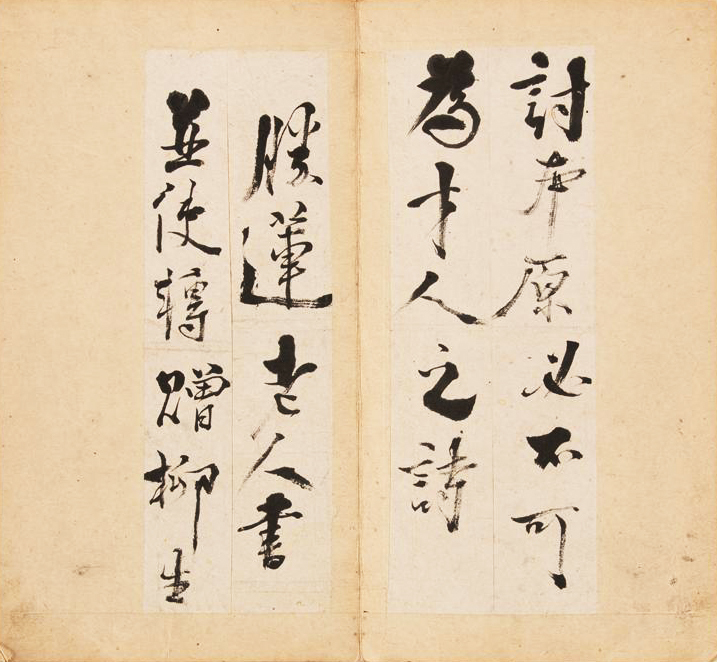 討本原必不可
為才人之詩
勝蓮老人書
並使轉贈柳生